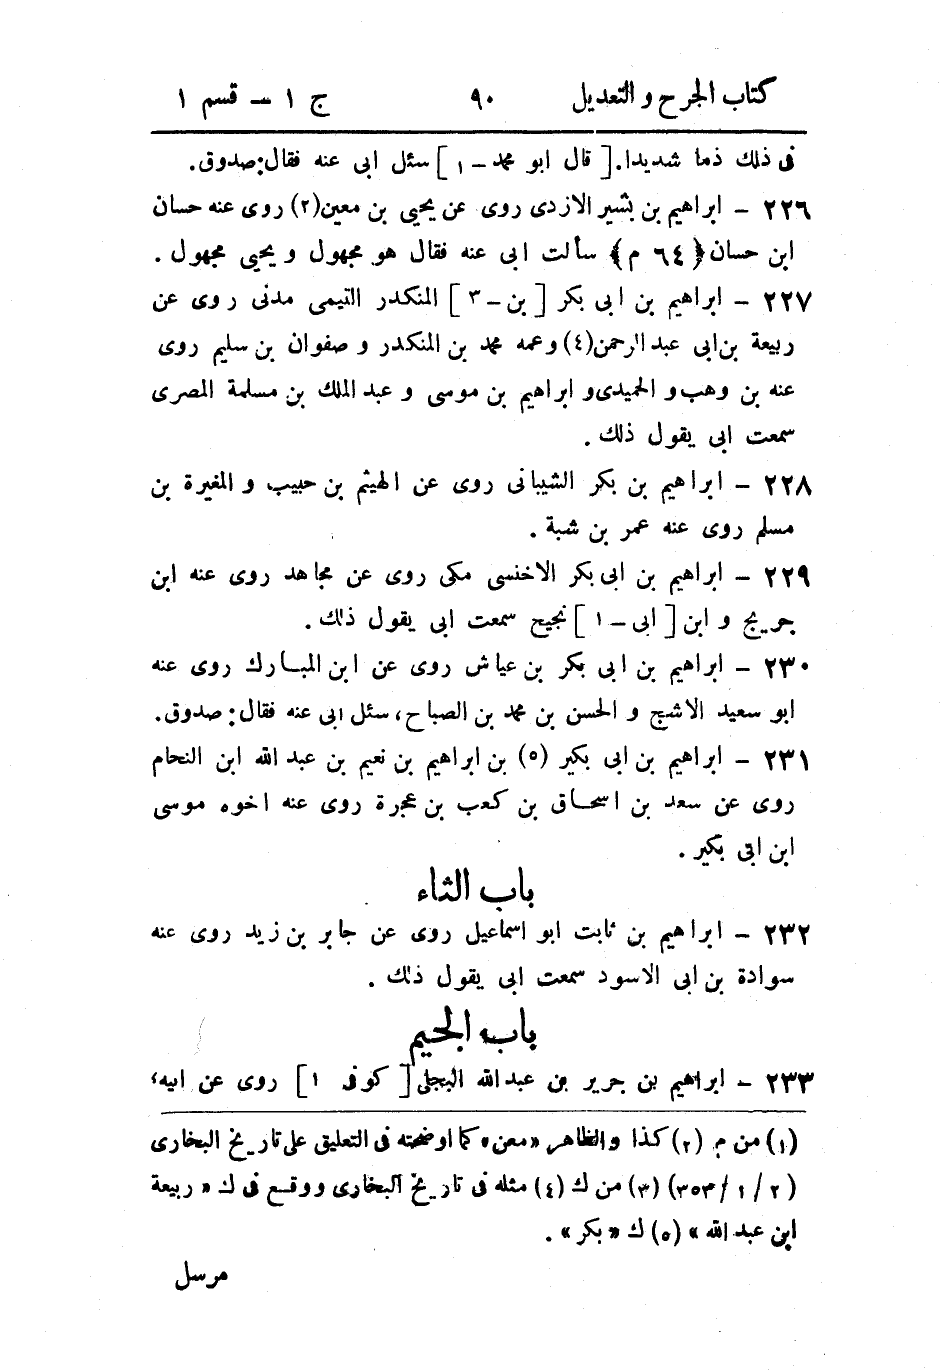 كتاب الجرح والتعديل ٩٠ ج ١ – قسم ١
فى ذلك ذما شديدا. [ قال ابو محمد – ١ ] سئل ابى عنه فقال: صدوق.
٢٢٦ – ابراهيم بن بشير الازدى روى عن يحيى بن معين (٢) روى عنه حسان
ابن حسان ﴿ ٦٤ م ﴾ سألت ابى عنه فقال هو مجهول و يحيى مجهول .
٢٢٧ – ابراهيم بن ابى بكر [ بن – ٣ ] المنكدر التيمى مدنى روى عن
ربيعة بن ابى عبد الرحمن (٤) وعمه محمد بن المنكدر و صفوان بن سليم روى
عنه بن وهب و الحميدى و ابراهيم بن موسى و عبد الملك بن مسلمة المصرى
سمعت ابى يقول ذلك .
٢٢٨ – ابراهيم بن بكر الشيبانى روى عن الهيثم بن حبيب و المغيرة بن
مسلم روى عنه عمر بن شبة .
٢٢٩ – ابراهيم بن ابى بكر الاخنسى مكى روى عن مجاهد روى عنه ابن
جريج و ابن [ ابى – ١ ] نجيح سمعت ابى يقول ذلك .
٢٣٠ – ابراهيم بن ابى بكر بن عياش روى عن ابن المبارك روى عنه
ابو سعيد الاشج و الحسن بن محمد بن الصباح، سئل ابى عنه فقال: صدوق.
٢٣١ – ابراهيم بن ابى بكير (٥) بن ابراهيم بن نعيم بن عبد الله ابن النحام
روى عن سعد بن اسحاق بن كعب بن عجرة روى عنه اخوه موسى
ابن ابى بكير .
باب الثاء
٢٣٢ – ابراهيم بن ثابت ابو اسماعيل روى عن جابر بن زيد روى عنه
سوادة بن ابى الاسود سمعت ابى يقول ذلك .
باب الجيم
٢٣٣ – ابراهيم بن جرير بن عبد الله البجلى [ كوفى ١ ] روى عن ابيه،
(١) من م (٢) كذا والظاهر «معن» كما اوضحته فى التعليق على تاريخ البخارى
(٢ / ١ / ٣٥٣) (٣) من ك (٤) مثله فى تاريخ البخارى ووقع فى ك « ربيعة
ابن عبد الله » (٥) ك « بكر » .
مرسل